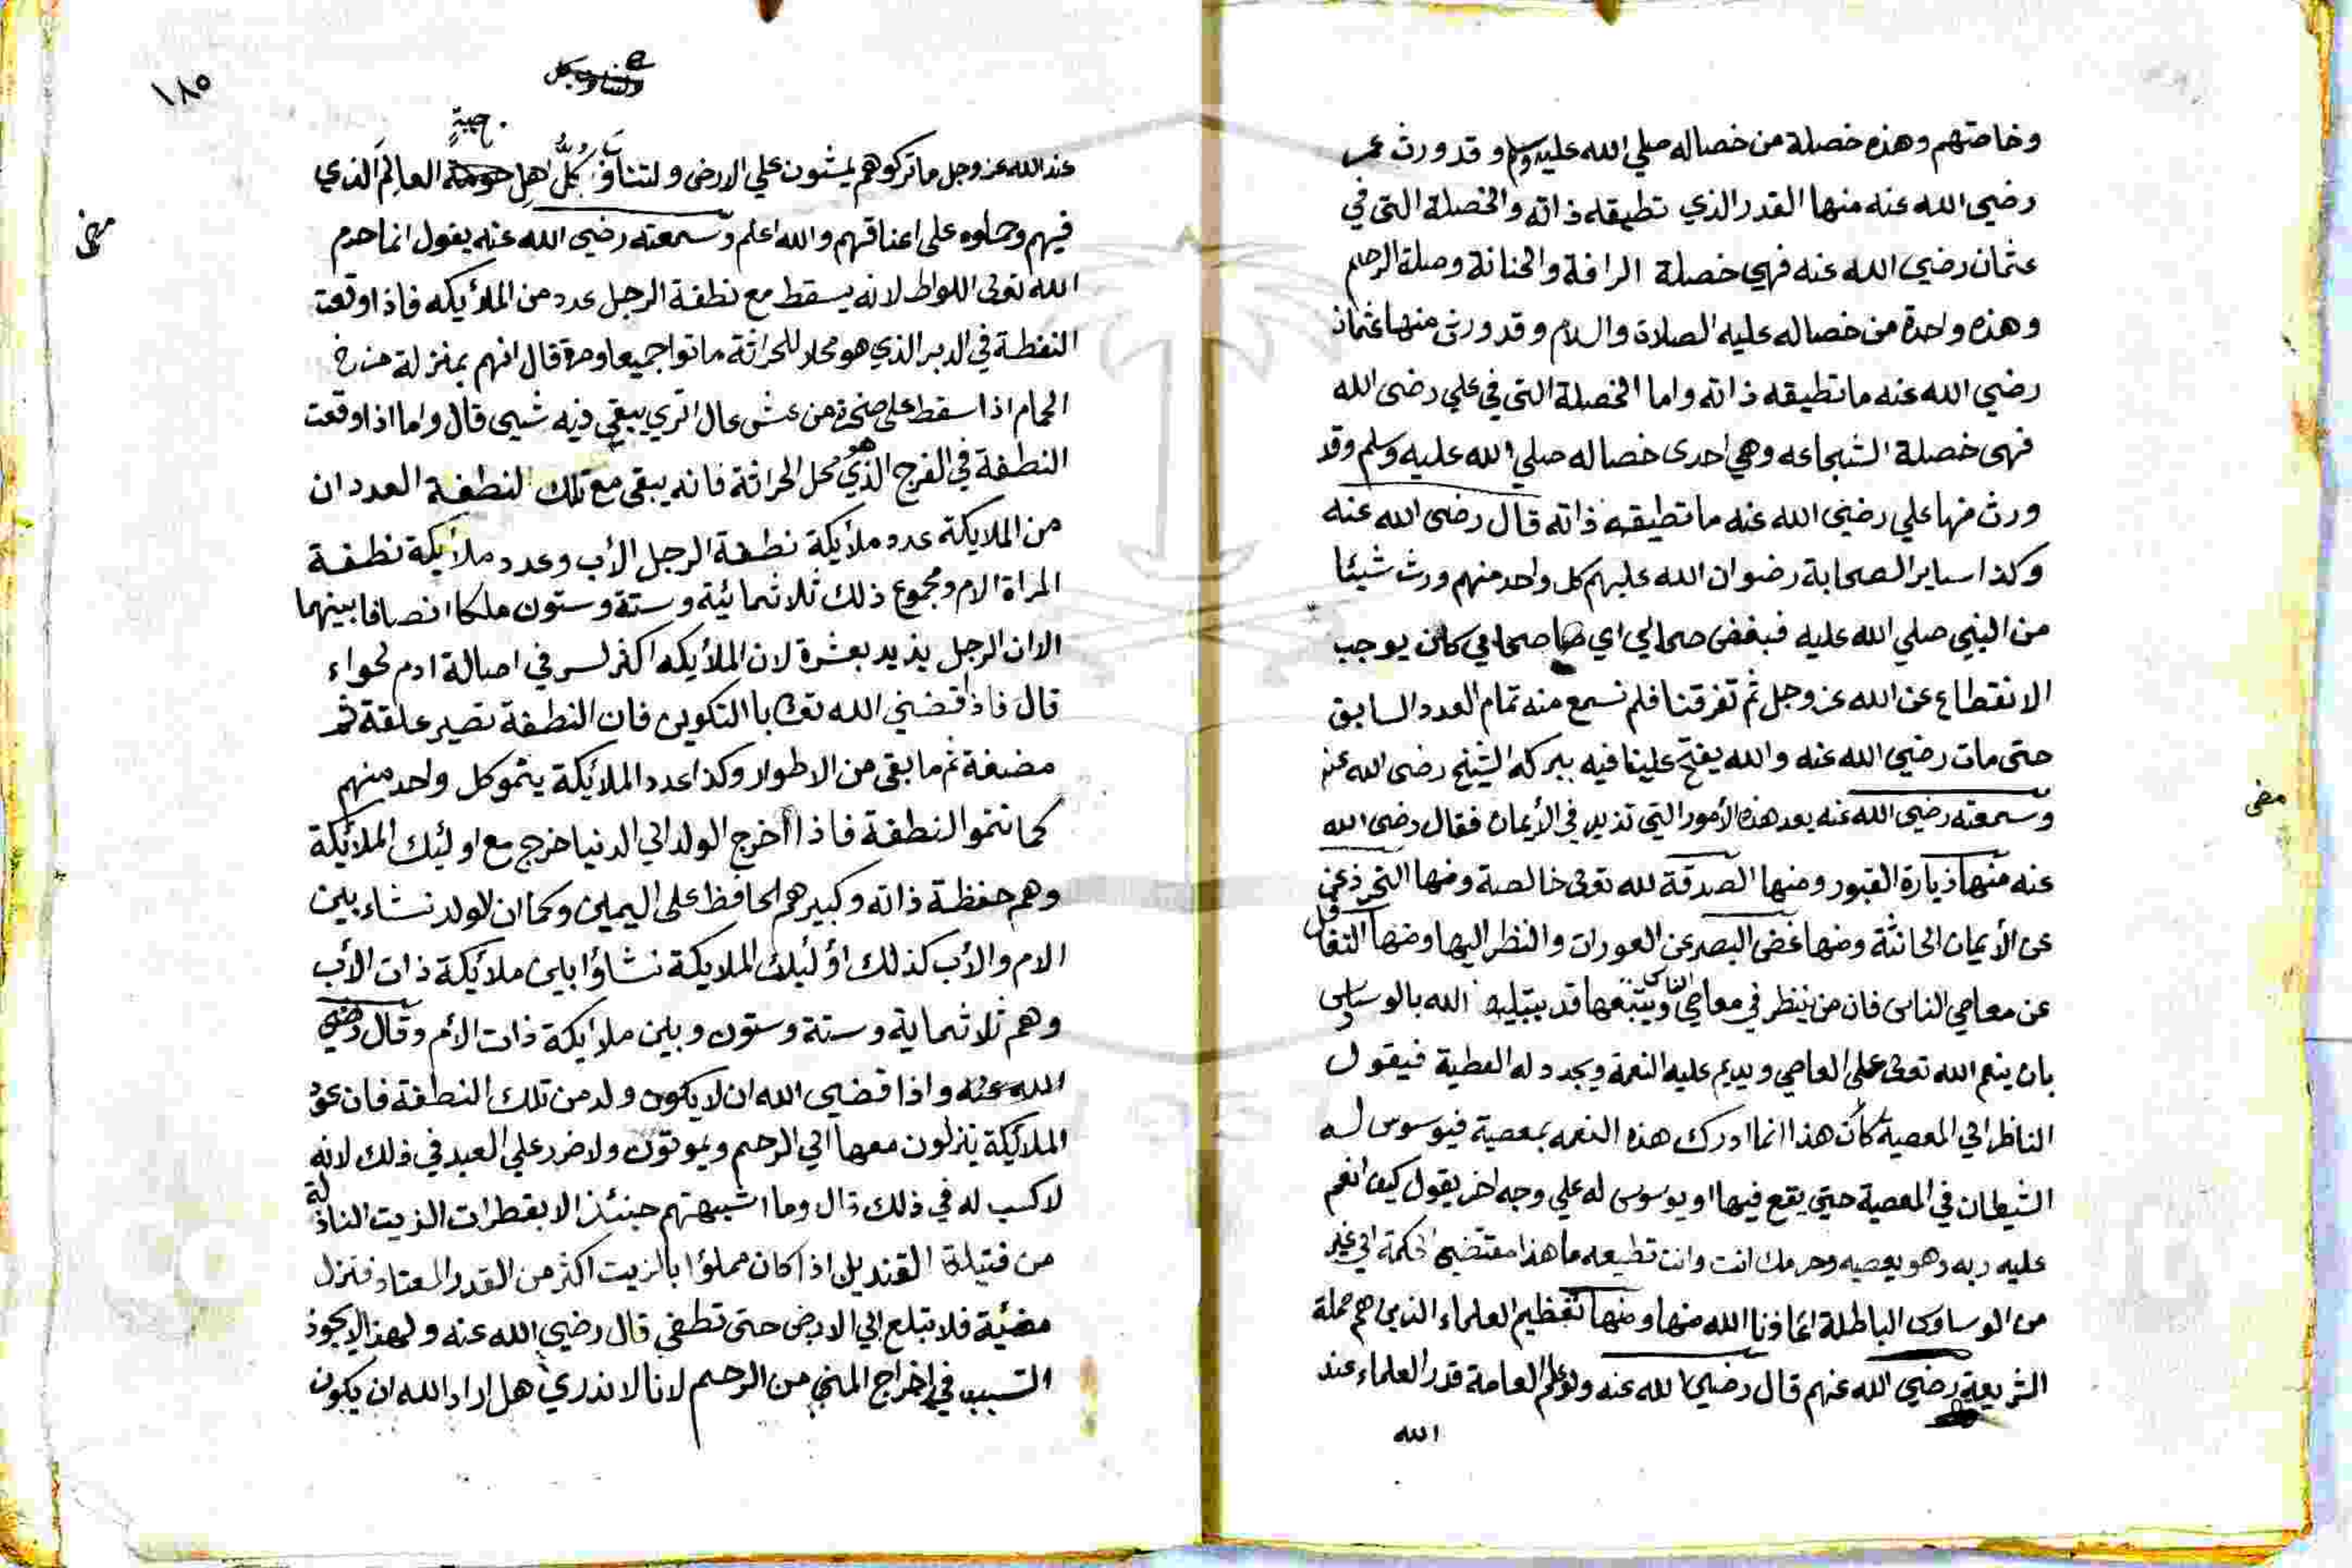 وخاصتهم وهذه خصلة من خصاله صلي الله عليه وسلم وقد ورث عمر
رضي الله عنه منها القدر الذي تطيقه ذاته والخصلة التي في
عثمان رضي الله عنه فهي خصلة الرافة والحنانة وصلة الرحم
وهذه واحدة من خصاله عليه الصلاة والسلام وقد ورث منها عثمان
رضي الله عنه ما تطيقه ذاته واما الخصلة التي في علي رضى الله
فهى خصلة الشجاعه وهي احدى خصاله صلي الله عليه وسلم وقد
ورث منها علي رضي الله عنه ما تطيقه ذاته قال رضى الله عنه
وكذا ساير الصحابة رضوان الله عليهم كل واحد منهم ورث شيئا
من النبي صلي الله عليه فبغض صحابي اي صحابي كان يوجب
الانقطاع عن الله عز وجل ثم تفرقنا فلم نسمع منه تمام العدد السابق
حتى مات رضي الله عنه والله يفتح علينا فيه ببركه الشيخ رضى الله عنه
وسمعته رضي الله عنه يعد هذه الأمور التي تزيد في الأيمان فقال رضى الله
عنه منها زيارة القبور ومنها الصدقة لله تعالى خالصة ومنها التحرز عن
عن الأيمان الحانثة ومنها غض البصر عن العورات والنظر اليها ومنها التغافل
عن معاصي الناس فان من ينظر في معاصي الناس ويتتبعها قد يبتليه الله بالوسواس
بان ينعم الله تعالى على العاصي ويديم عليه النعمة ويجدد له العطية فيقول
الناظر الي المعصية كأن هذا انما ادرك هذه النعمه بمعصية فيوسوس له
الشيطان في المعصية حتي يقع فيها او يوسوس له علي وجه اخر يقول كيف انعم
عليه ربه وهو يعصيه وحرمك انت وانت تطيعه ما هذا مقتضي الحكمة الي غير
من الوساوس الباطلة اعاذنا الله منها ومنها تعظيم العلماء الذين هم حملة
الشريعة رضي الله عنهم قال رضي الله عنه ولو علم العامة قدر العلماء عند
الله
١٨٥
عند الله عز وجل ما تركوهم يمشون علي الارض ولتناوب كل اهل جهة العالم الذي
فيهم وحملوه على اعناقهم والله اعلم وسمعته رضي الله عنه يقول انما حرم
الله تعالى اللواط لانه يسقط مع نطفة الرجل عدد من الملأيكه فاذا وقعت
النطفة في الدبر الذي هو محلا للحراثة ماتوا جميعا ومرة قال انهم بمنزلة فرخ
الحمام اذا سقط على صخرة من عش عال اتري يبقي فيه شيى قال واما اذا وقعت
النطفة في الفرج الذي هو محل الحراثة فانه يبقى مع تلك النطفة العددان
من الملايكة عدد ملأيكة نطفة الرجل الأب وعدد ملأيكة نطفة
المراة الام ومجموع ذلك ثلاثمائية وستة وستون ملكا انصافا بينهما
الا ان الرجل يزيد بعشرة لان الملأيكه اكثر لسر في اصالة ادم لحواء
قال فاذا قضي الله تعالى بالتكوين فان النطفة تصير علقة ثم
مضغة ثم ما بقى من الاطوار وكذا عدد الملائكة ينمو كل واحد منهم
كما تنمو النطفة فاذا أخرج الولد الي الدنيا خرج مع اوليك الملأيكة
وهم حفظة ذاته وكبيرهم الحافظ على اليمين وكما ان الولد نشاء بين
الام والأب كذلك أوليك الملايكة نشاؤا بين ملأيكة ذات الأب
وهم ثلاثماية وستة وستون وبين ملأيكة ذات الأم وقال رضي
الله عنه واذا قضي الله ان لا يكون ولد من تلك النطفة فان
الملأيكة ينزلون معها الي الرحم ويموتون ولا ضرر علي العبد في ذلك لانه
لا كسب له في ذلك قال وما اشبهتهم حينئذ الا بقطرات الزيت النازلة
من فتيلة القنديل اذا كان مملؤا بالزيت اكثر من القدر المعتاد فتنزل
مضئية فلا تبلع الي الارض حتى تطفي قال رضي الله عنه ولهذا لا يجوز
التسبب في اخراج المني من الرحم لانا لا ندري هل اراد الله ان يكون